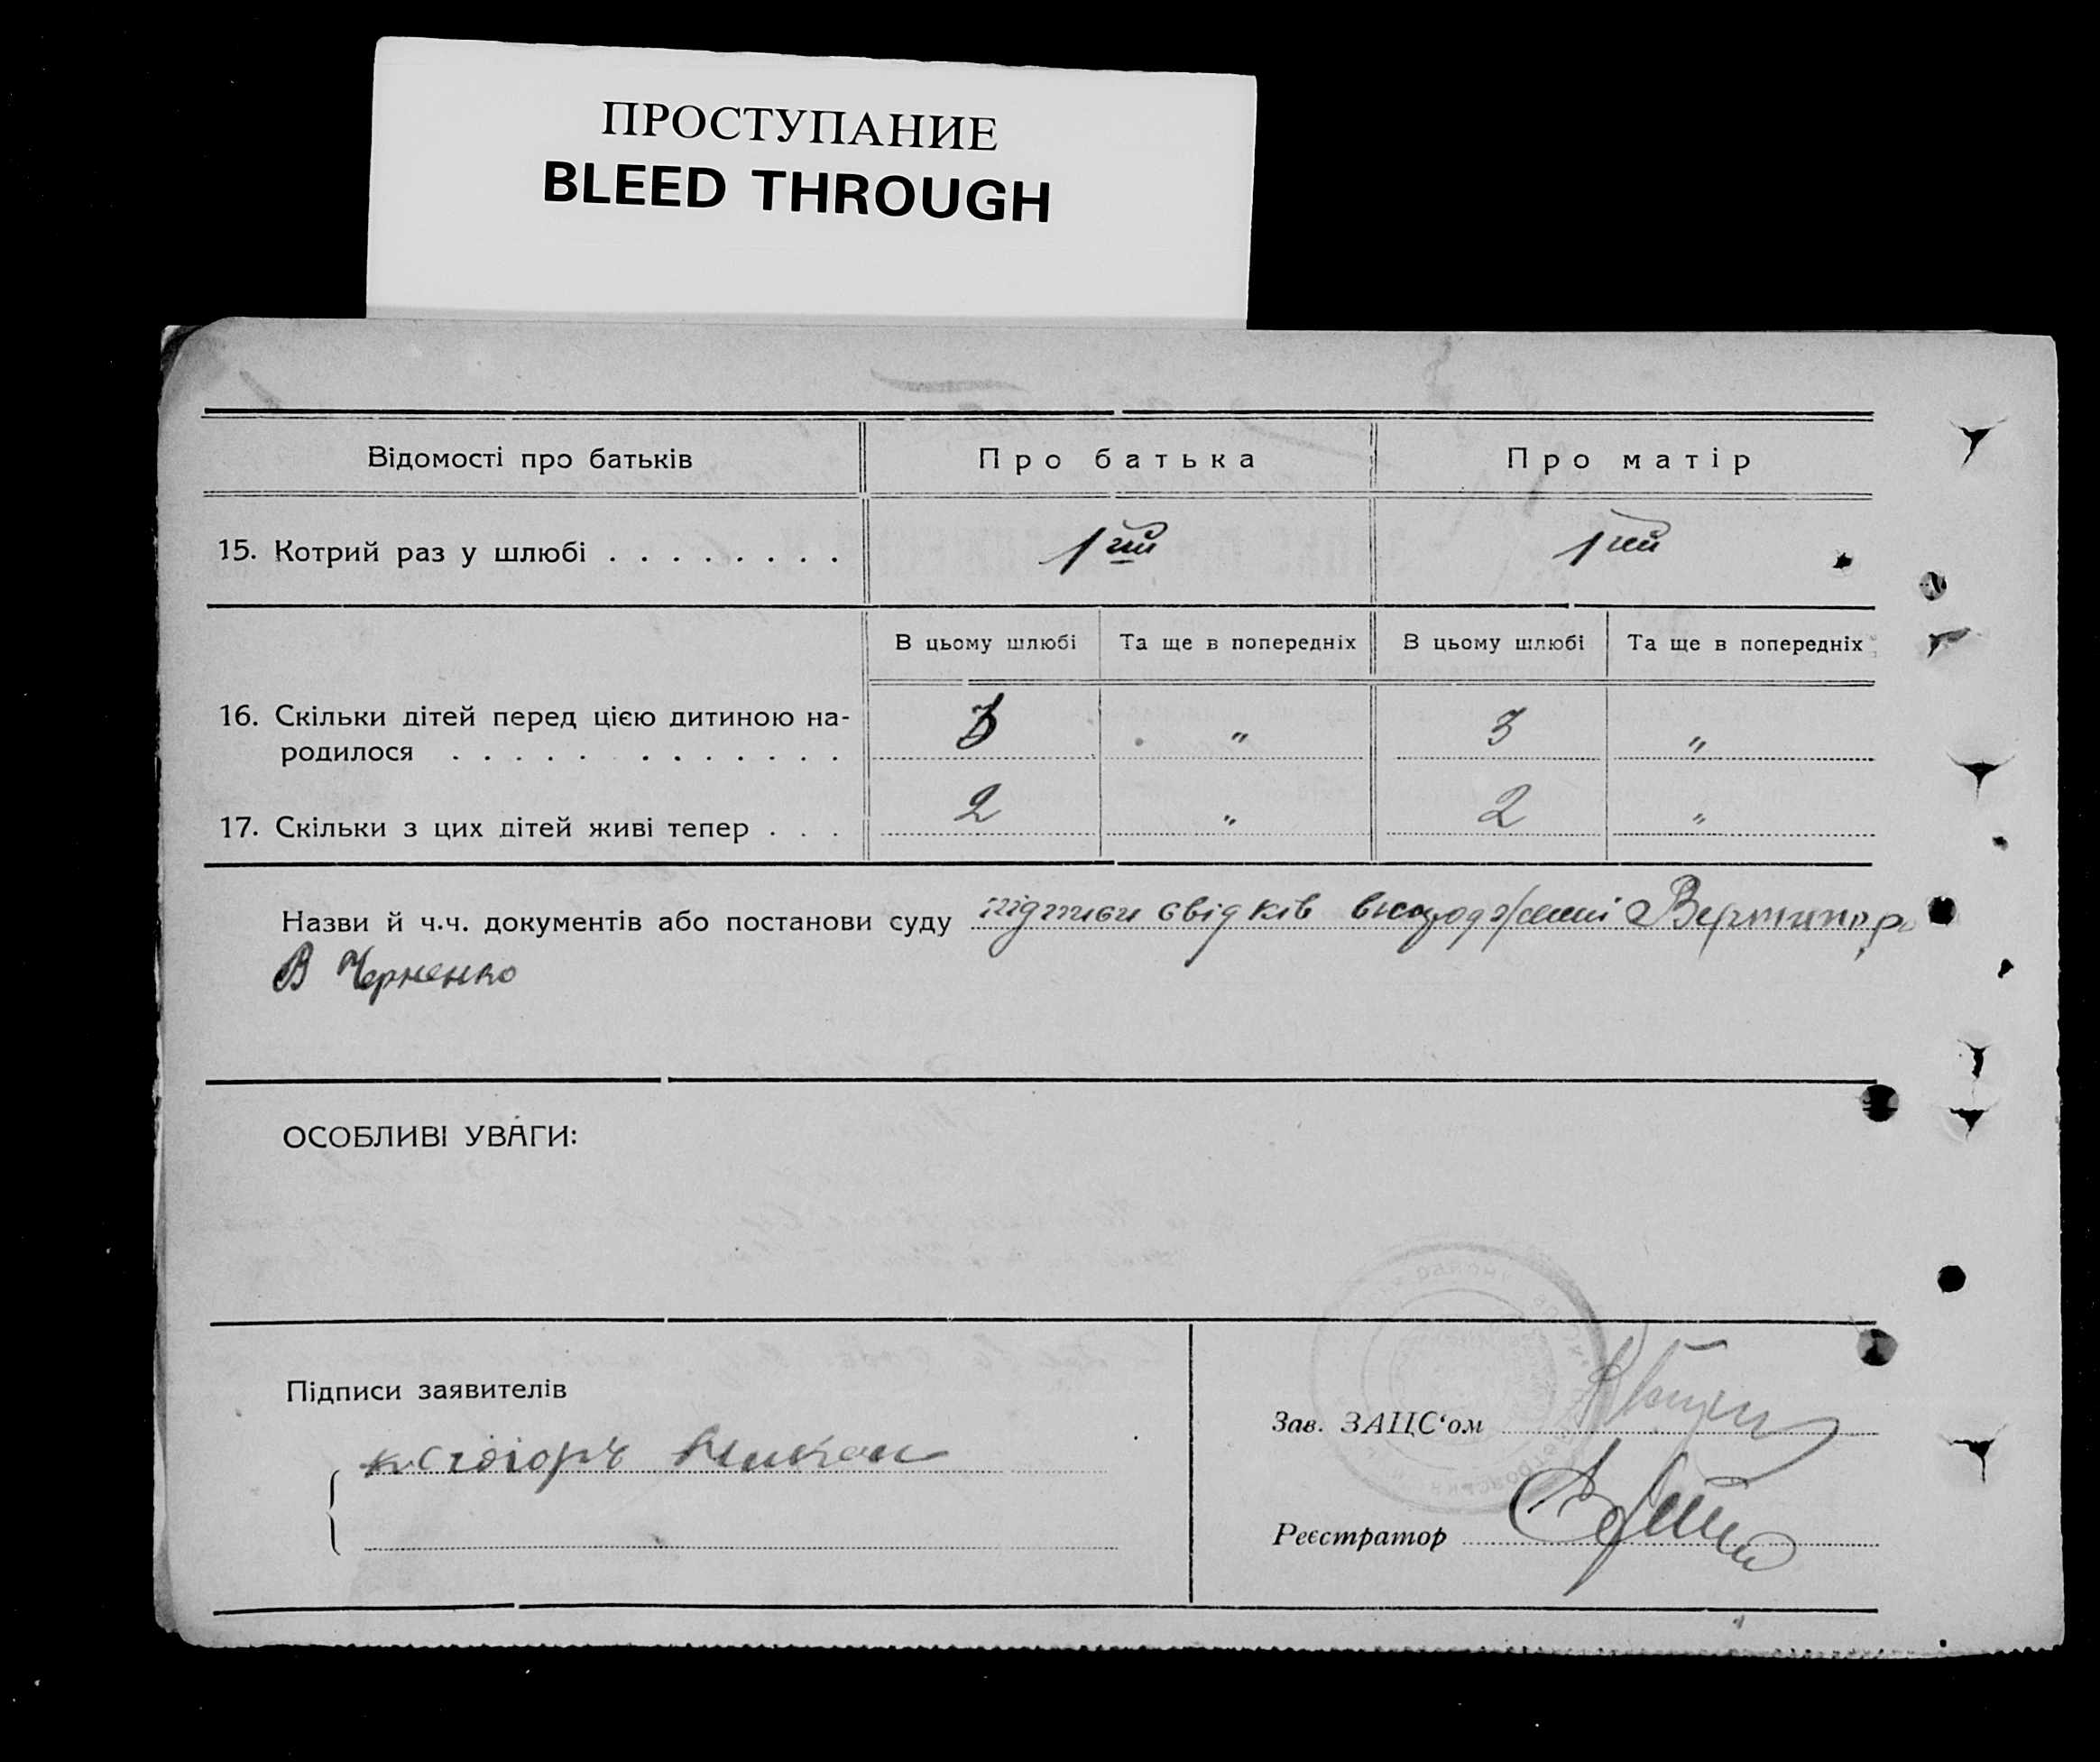 ПРОСТУПАНИЕ
BLEED THROUGH
Відомості про батьків
Про батька
Про матір
15. Котрий раз у шлюбі . . . . . . . .
1ий
1ий
В цьому шлюбі
Та ще в попередніх
В цьому шлюбі
Та ще в попередніх
16. Скільки дітей перед цією дитиною на-
родилося . . . . . . . . . . . .
3
"
3
"
17. Скільки з цих дітей живі тепер . . .
2
"
2
"
Назви й ч.ч. документів або постанови суду підписи свідків
В Черненко
ОСОБЛИВІ УВАГИ:
Підписи заявителів
Зав. ЗАЦС‘ом
Реєстратор